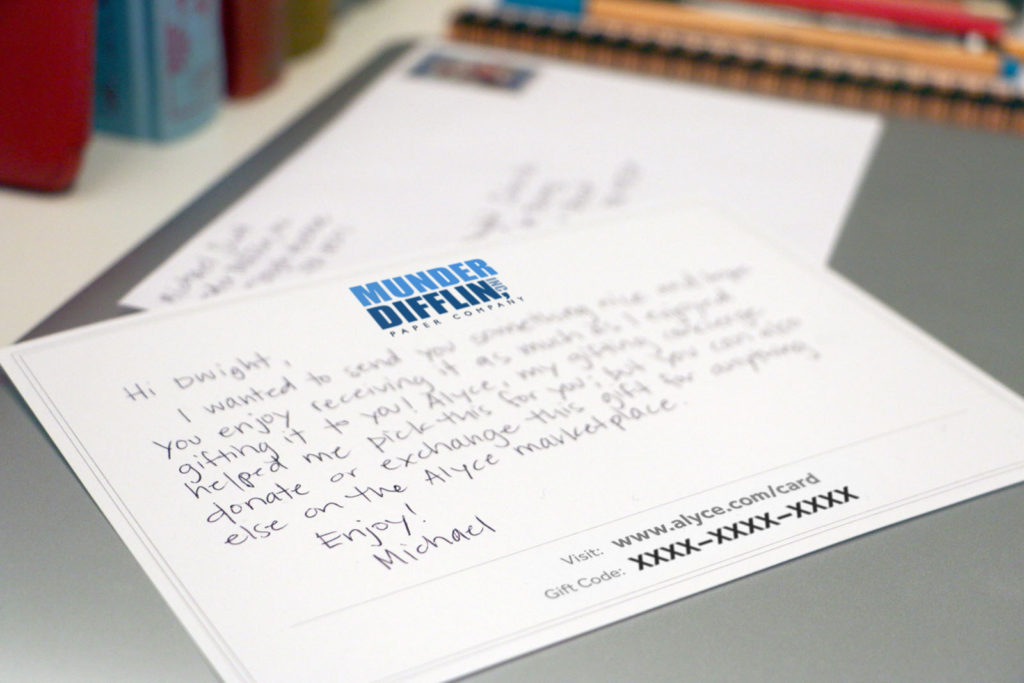 MUNDER
DIFFLIN, INC
PAPER COMPANY
Hi Dwight,
I wanted to send you something nice and hope
you enjoy receiving it as much as I enjoyed
gifting it to you! Alyce, my gifting
helped me pick this for you, but you can also
donate or exchange this gift for anything
else on the Alyce marketplace.
Enjoy!
Michael
Visit: www.alyce.com/card
Gift Code: XXXX-XXXX-XXXX